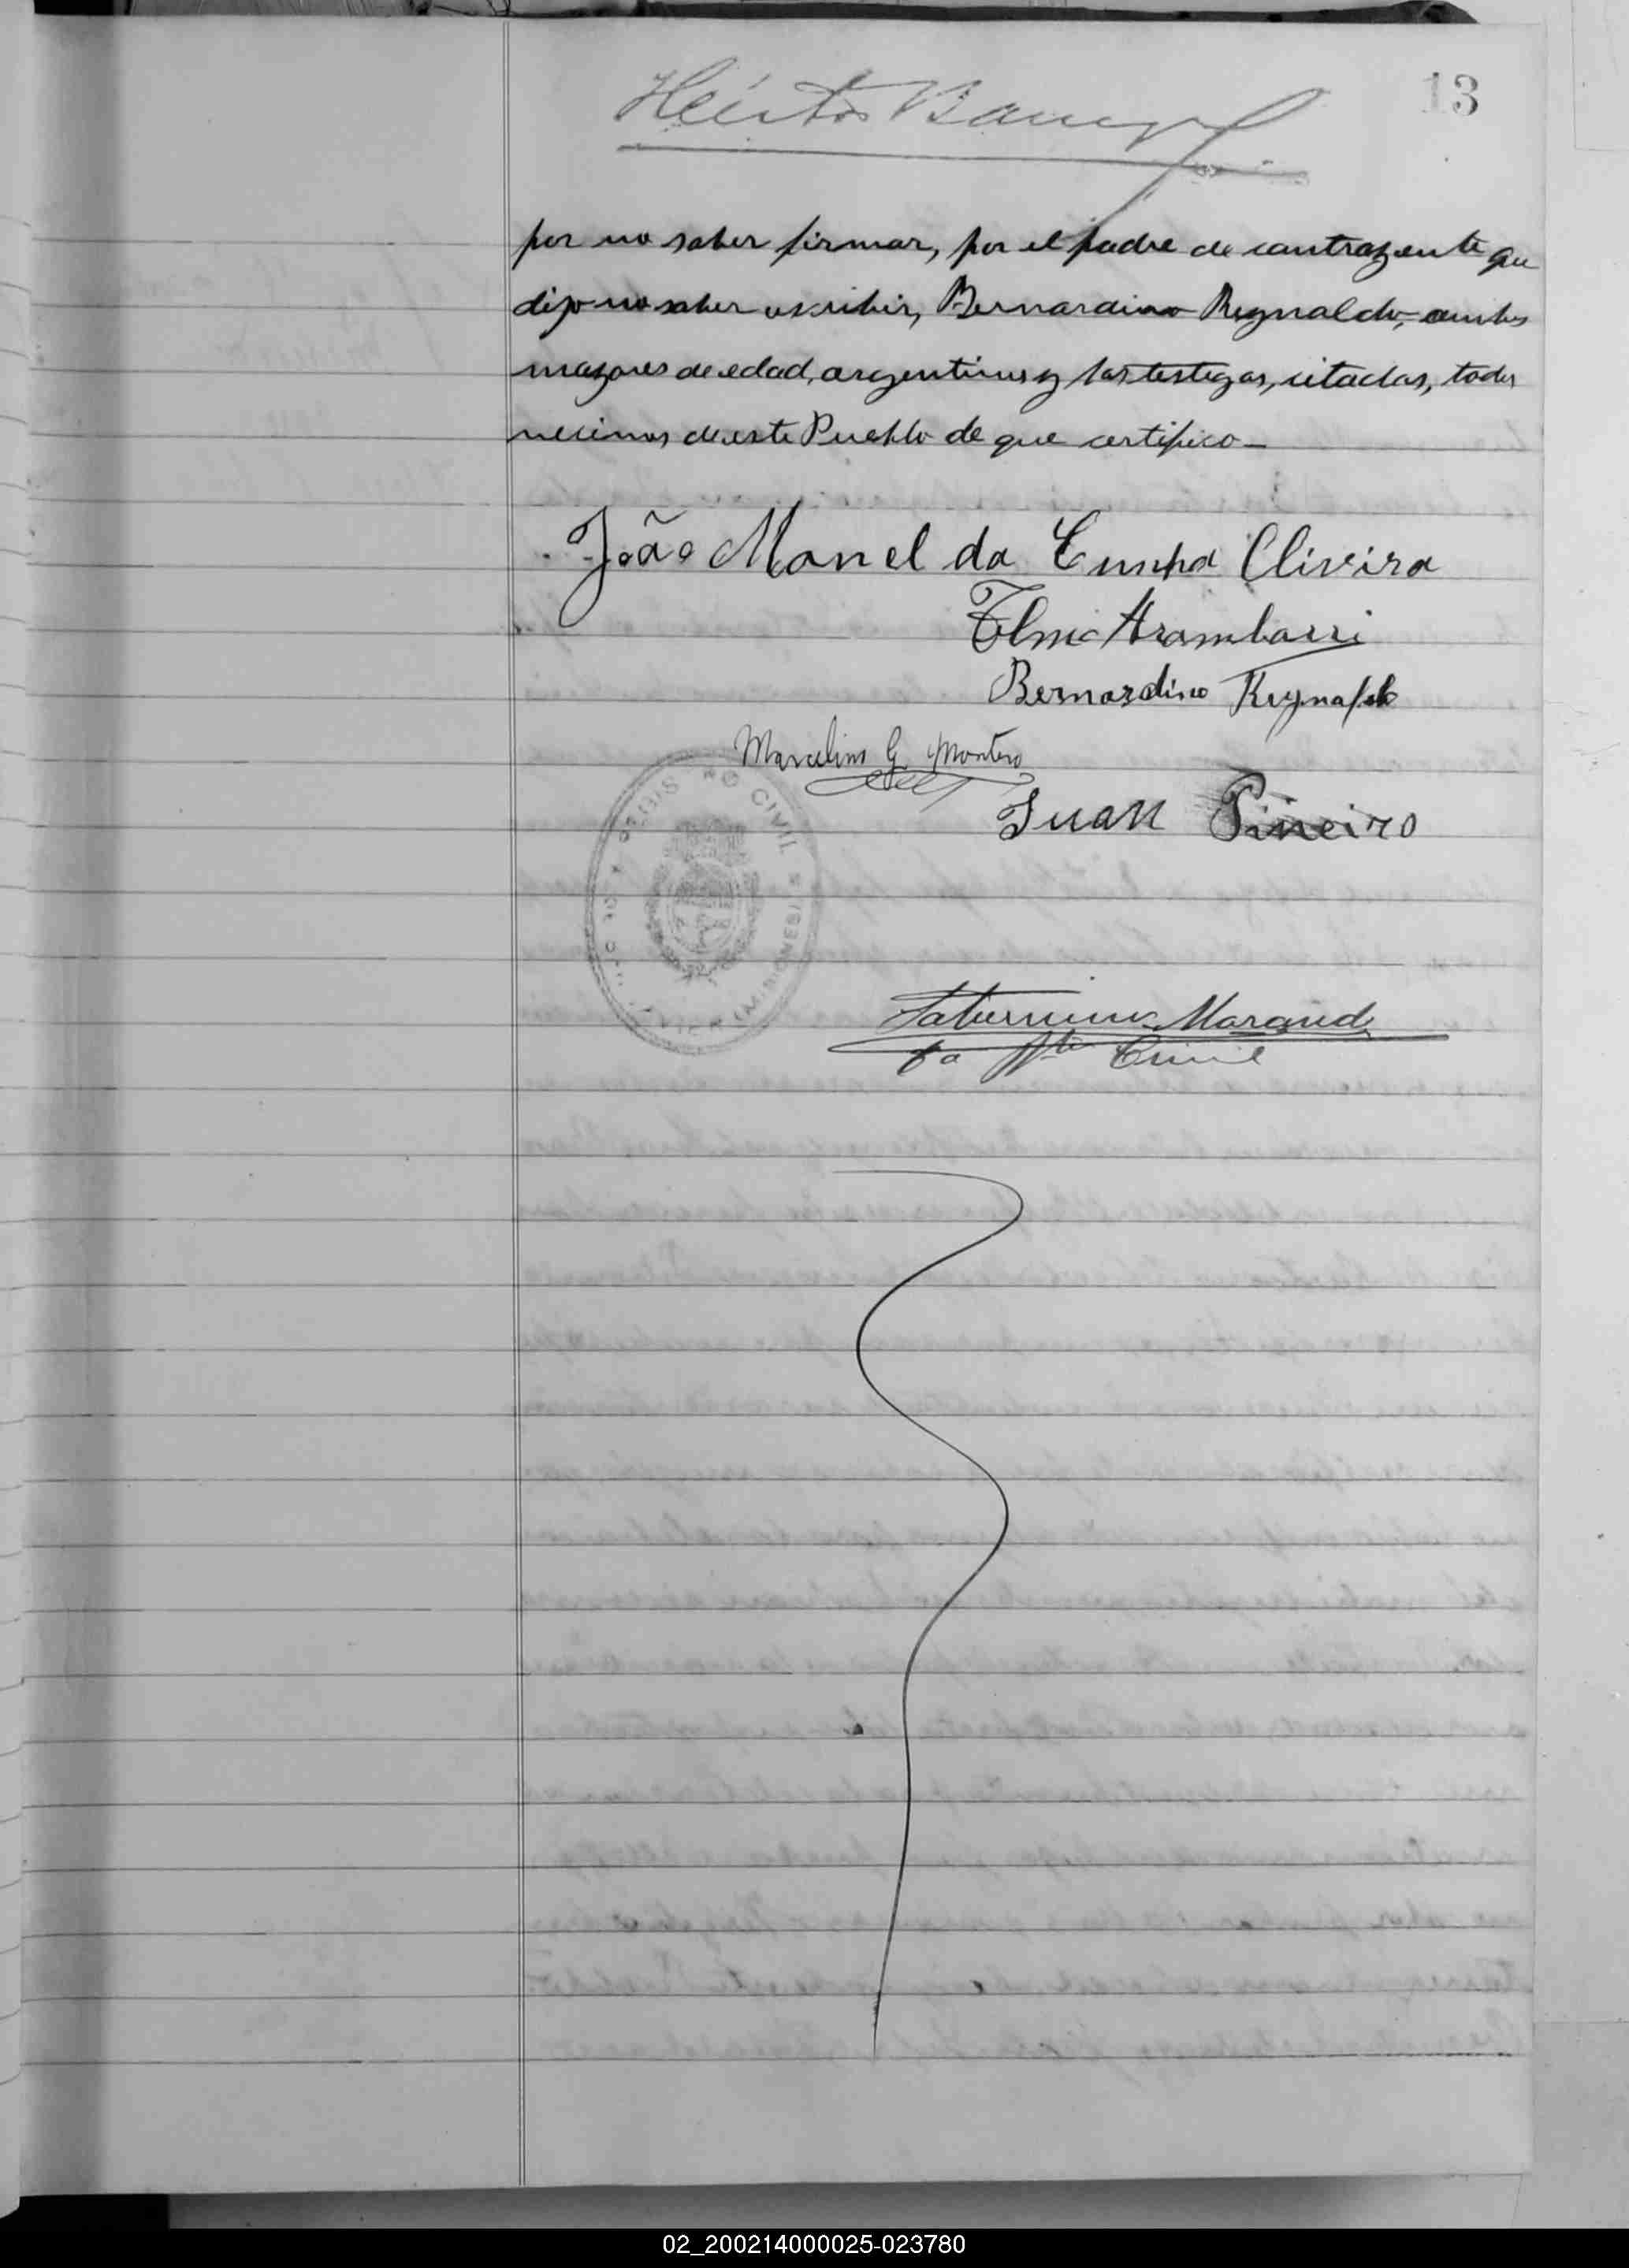 13
por no saber firmar, por el padre de contrayente que
dijo no saber escribir, Bernardino Reynaldo, ambos
mayores de edad, argentinos y los testigos, citados, todos
vecinos de este Pueblo de que certifico—
João Manel da Cunha Oliveira
Telmo Arambarri
Bernardino Reynaldo
Marcelino G. Montero
Juan Piñeiro
REGIS RO CIVIL
MISIONES
Saturnino
02_200214000025-023780